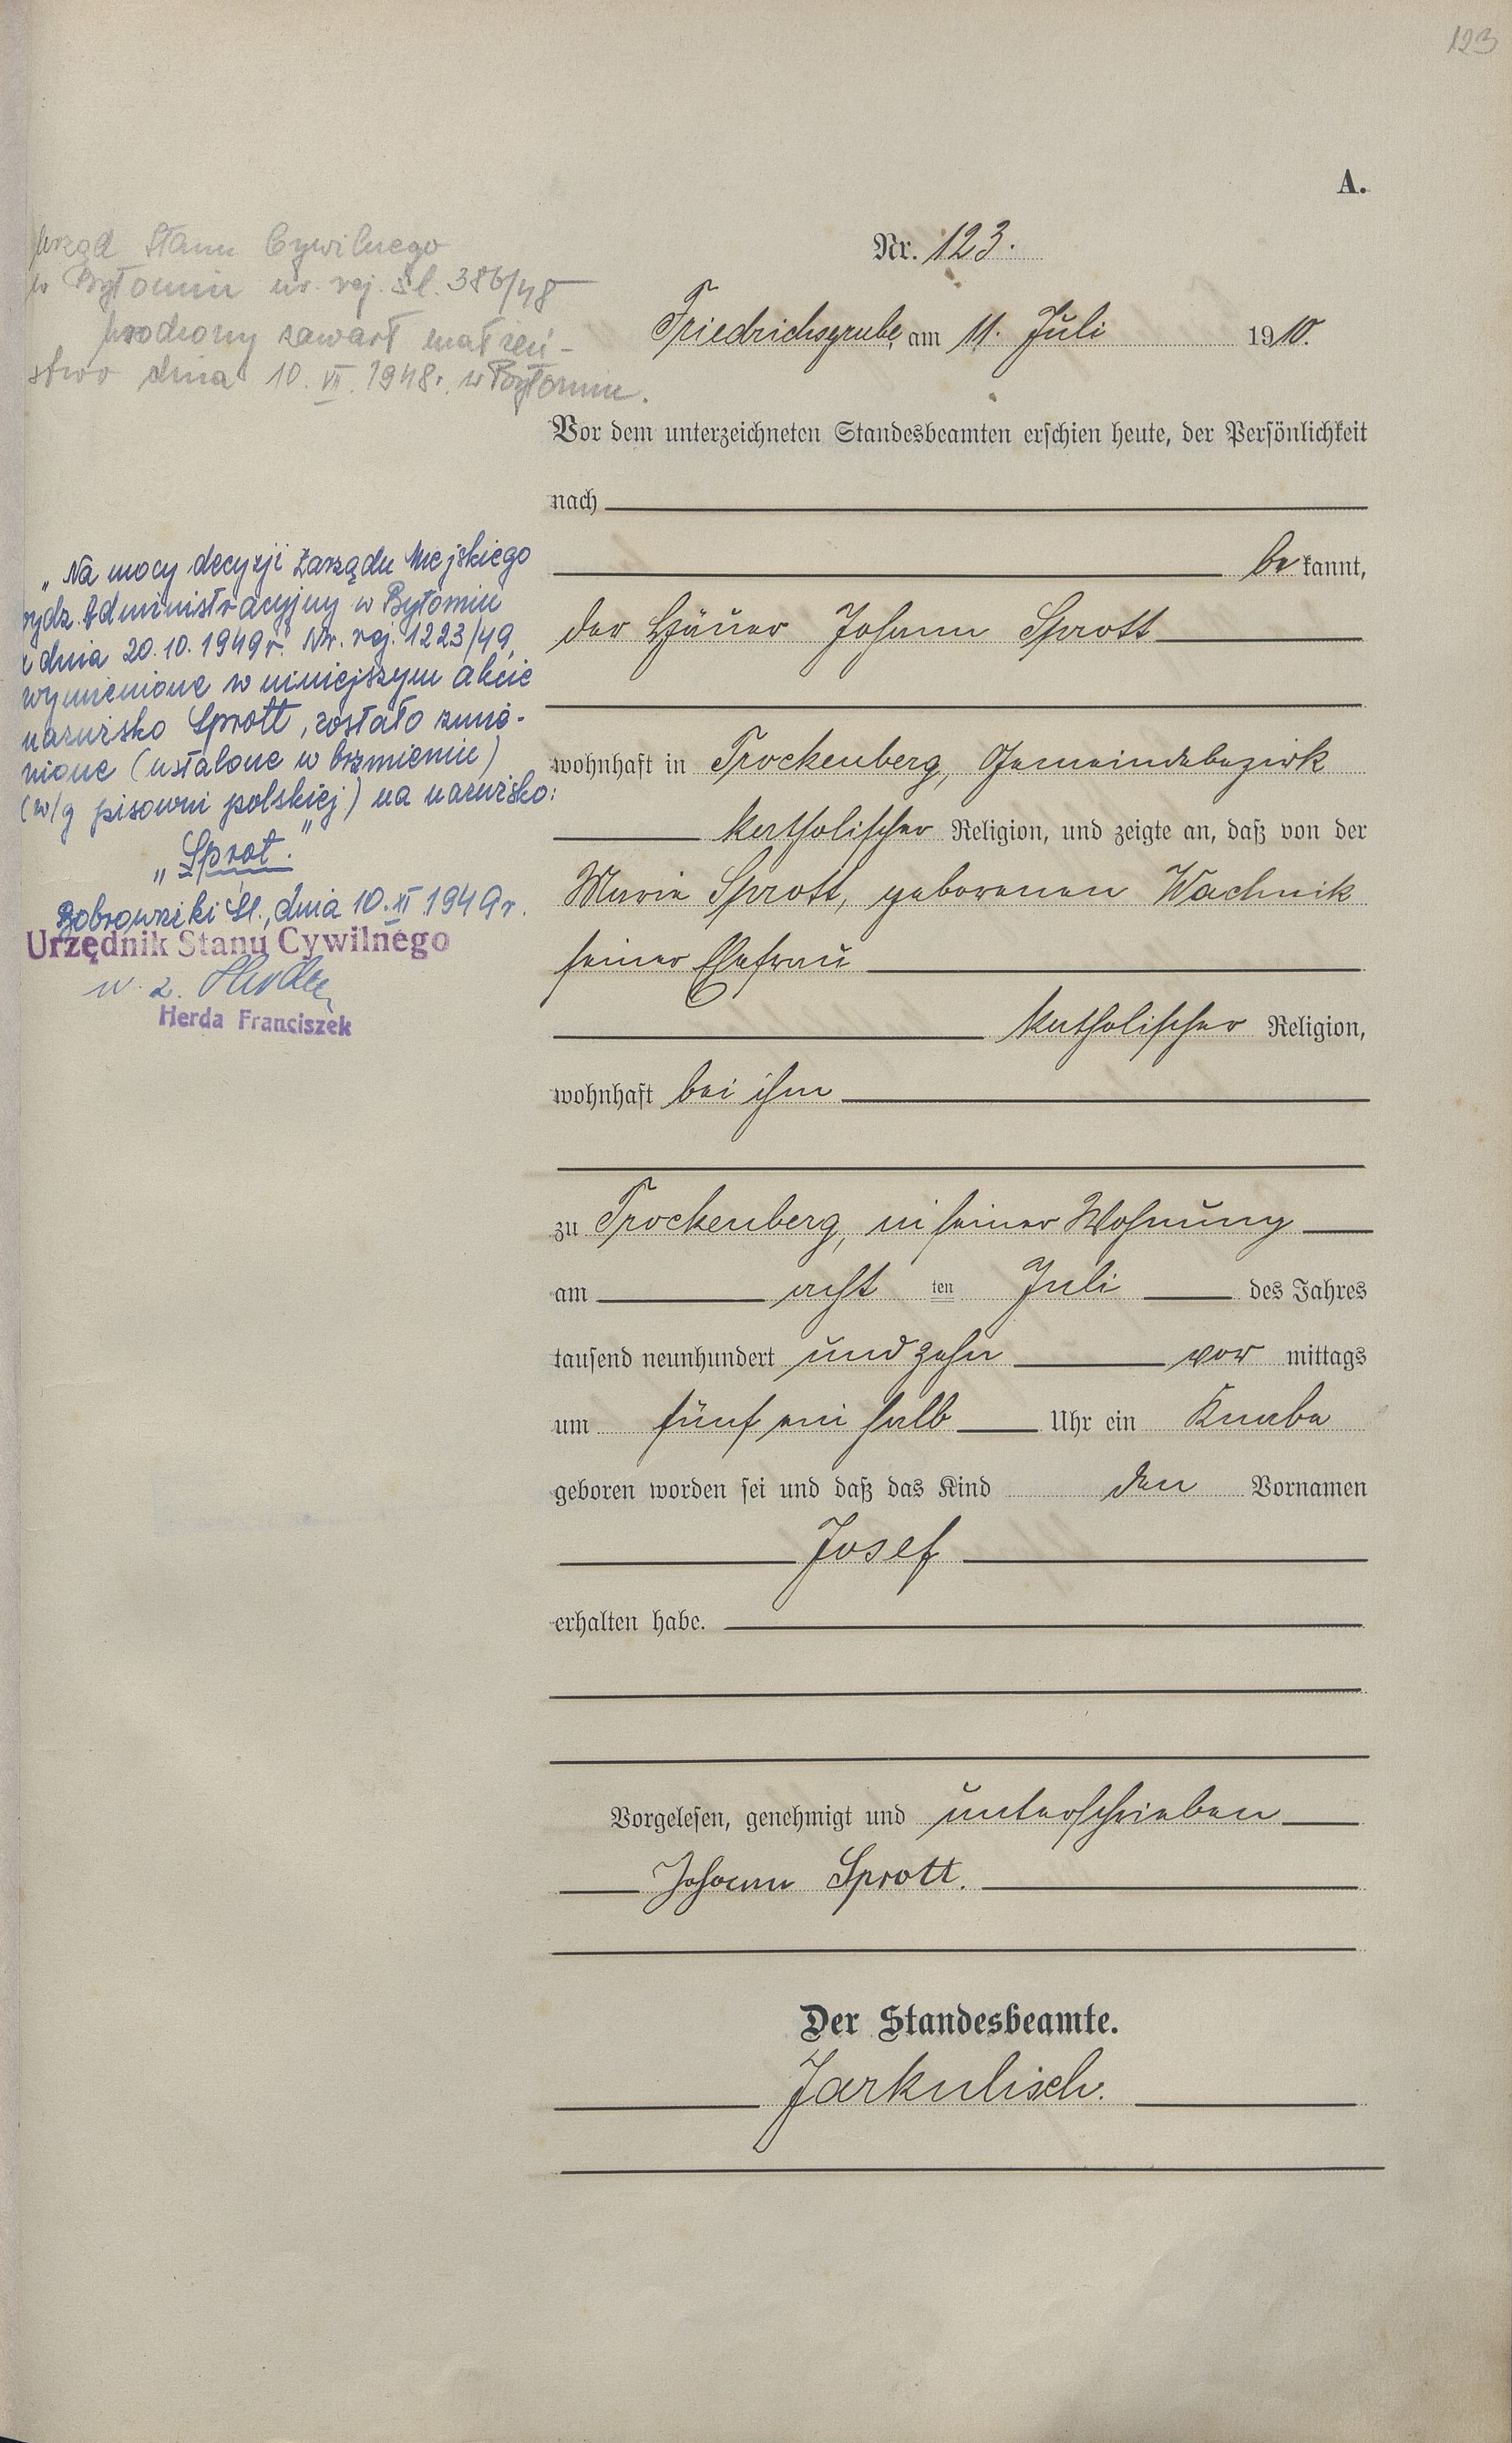 123
A.
Nr. 123.
Friedrichsgrube, am 11. Juli 1910.
Vor dem unterzeichneten Standesbeamten erschien heute, der Persönlichkeit
nach
be kannt,
der Häuer Johann Sprott
wohnhaft in Trockenberg, Gemeindebezirk
katholischer Religion, und zeigte an, daß von der
Marie Sprott, geborenen Wachnik
seiner Ehefrau
katholischer Religion,
wohnhaft bei ihm
zu Trockenberg, in seiner Wohnung
am acht ten Juli des Jahres
tausend neunhundert und zehn vor mittags
um fünf ein halb Uhr ein Knabe
geboren worden sei und daß das Kind den Vornamen
Josef
erhalten habe.
Vorgelesen, genehmigt und unterschrieben
Johann Sprott.
Der Standesbeamte.
Jarkulisch.
Urząd Stanu Cywilnego
w Bytomiu nr. rej. śl. 386/48
zawarł małżeń-
stwo dnia 10. VI. 1948r. w Bytomiu.
„Na mocy decyzji Zarządu Miejskiego
wydz. Administracyjny w Bytomiu
z dnia 20.10.1949r. Nr. rej. 1223/49,
wymienione w niniejszym akcie
nazwisko Sprott, zostało zmie-
nione (ustalone w brzmieniu)
(w/g pisowni polskiej) na nazwisko:
„Sprot."
Bobrowniki Śl., dnia 10. XI 1949r.
Urzędnik Stanu Cywilnego
w. z. Herda
Herda Franciszek